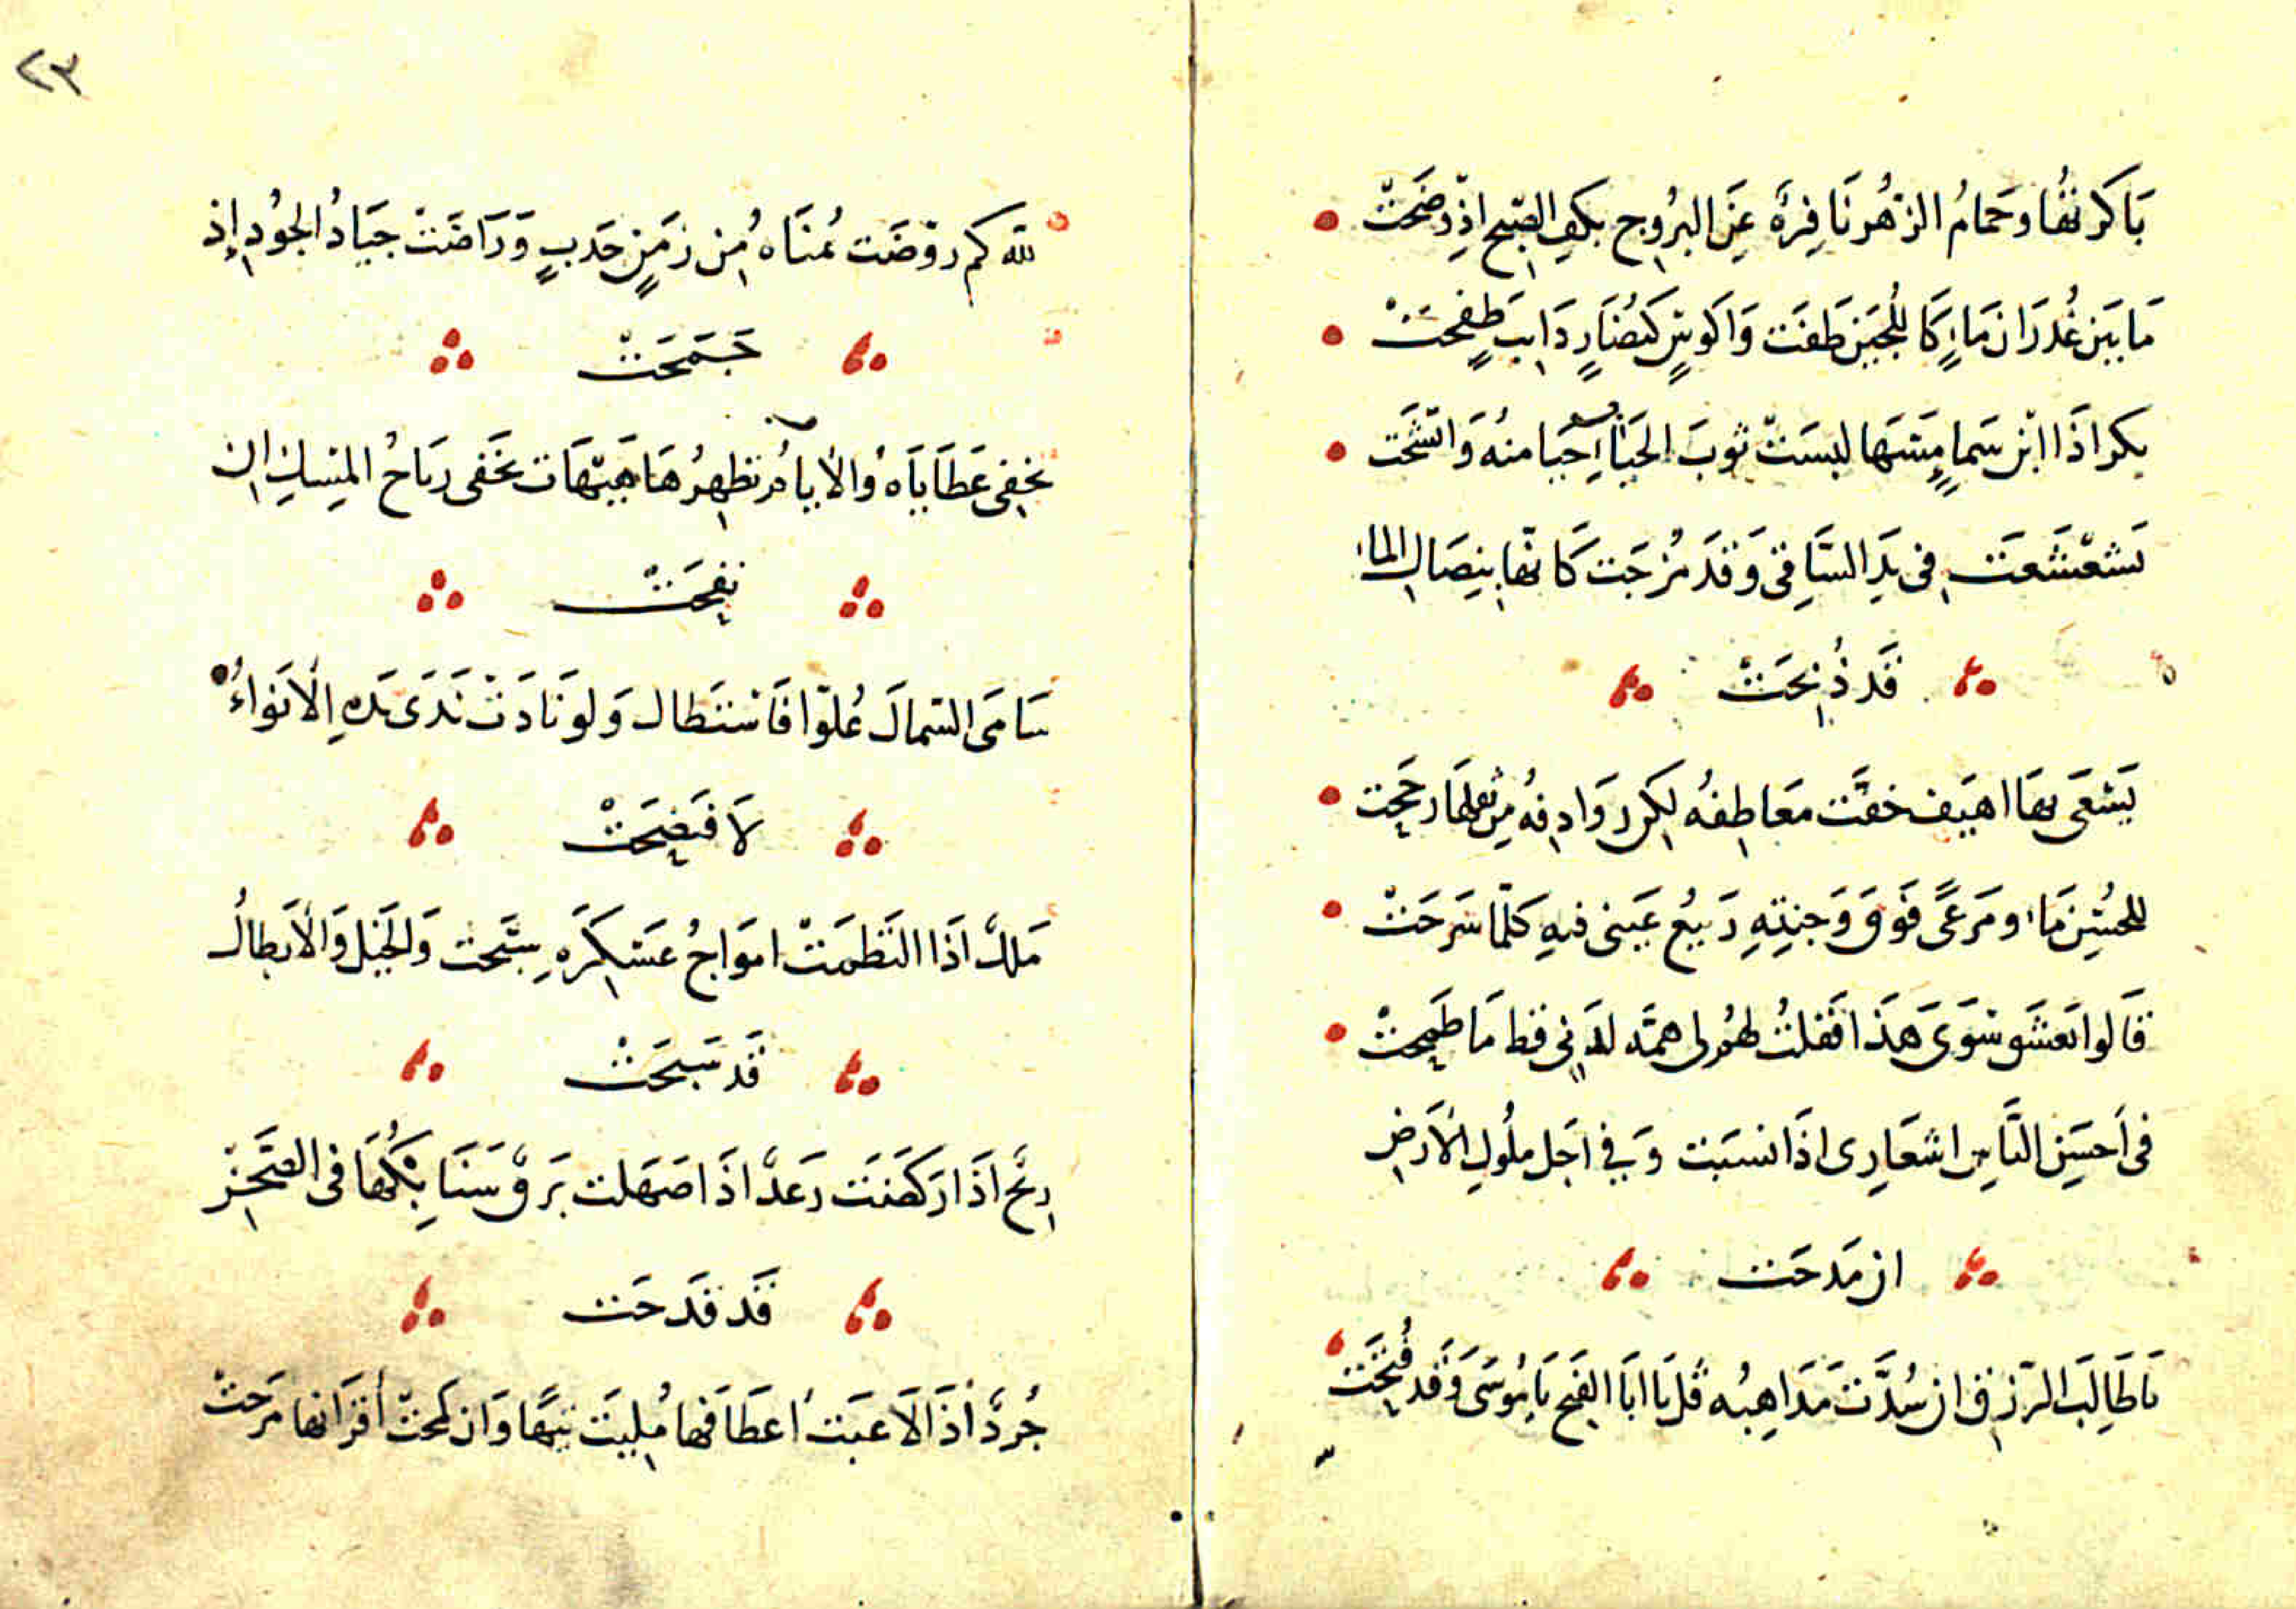 بَاكَرتُهَا وحَمَامُ الزُهْرِ نَافِرَةٌ عَنِ البُرُوجِ بكفِ الصّبح اذ وَضَحَتْ
مَا بَين غُدرَان مَاءٍ كَاللُجَين طَفَت وَاكوسٍ كنُضَارٍ دَايبٍ طَفحَتْ
بكر اذَا ابْن سَماءٍ مسَّها لبسَتْ ثوبَ الحَبَابِ حَيَا منهُ وَاتّشَحَت
تَشعْشَعَت في يَدِ السَّاقِي وَقَد مُزجَت كَانّها بنِصَالِ الماء
قَد ذُبِحَتْ
يَسْعَى بهَا اهيَف خفَّت مَعَاطِفُه لكن رَوَادِفُهُ مِن ثقلهَا رجَحَت
للحُسْنِ مَاء ومَرعًى فَوقَ وَجنتِهِ رَبيعُ عَيني فيهِ كلّما سَرَحَتْ
قَالوا تعشّو سِوَى هَذَا فَقلتُ لهُم لى همَّه لدَنيّ قط مَا طَمحَتْ
فى اَحسَنِ النَّاسِ اشعَارِى اذَا نسَبَت وَفي اجَل ملُوكِ الاَرَضِ
ان مَدَحَت
يَا طَالِبَ الرّزقِ ان سُدَّت مَذَاهِبُه قُل يَا ابَا الفَتح يَا مُوسَى وَقَد فُتحَت
٢٣
للّه كم روّضَت يُمنَاهُ من زمَنٍ جَدبٍ وَرَاضَتْ جيَادُ الجُودِ إذ
جَمَحَتْ
يخفِى عَطَايَاهُ وَالأيامُ تظهِرُهَا هَيهَات تخَفى ريَاحُ المِسكِ ان
نفحَتْ
سَامَى السّماكَ عُلوّا فَاسْتطال وَلو نَادَتْ نَدَى يَدهِ الأنَواءُ
لاَفتَضحَتْ
مَلكٌ اذَا التَطمَتْ امَواجُ عَسْكَرَهِ سبّحت وَالخَيل وَالأبطال
قَد سَبحَتْ
رِيحٌ اذَا رَكَضَت رَعدٌ اذَا صَهَلت بَرقٌ سَنَابكُهَا فى الصَّخرِ
قَد قَدَحَت
جُردٌ اذَا لَاعَبَت أعطَافَها مُلِيَت تيهًا وَان لمحَتْ أقرَانها مَرَحتْ